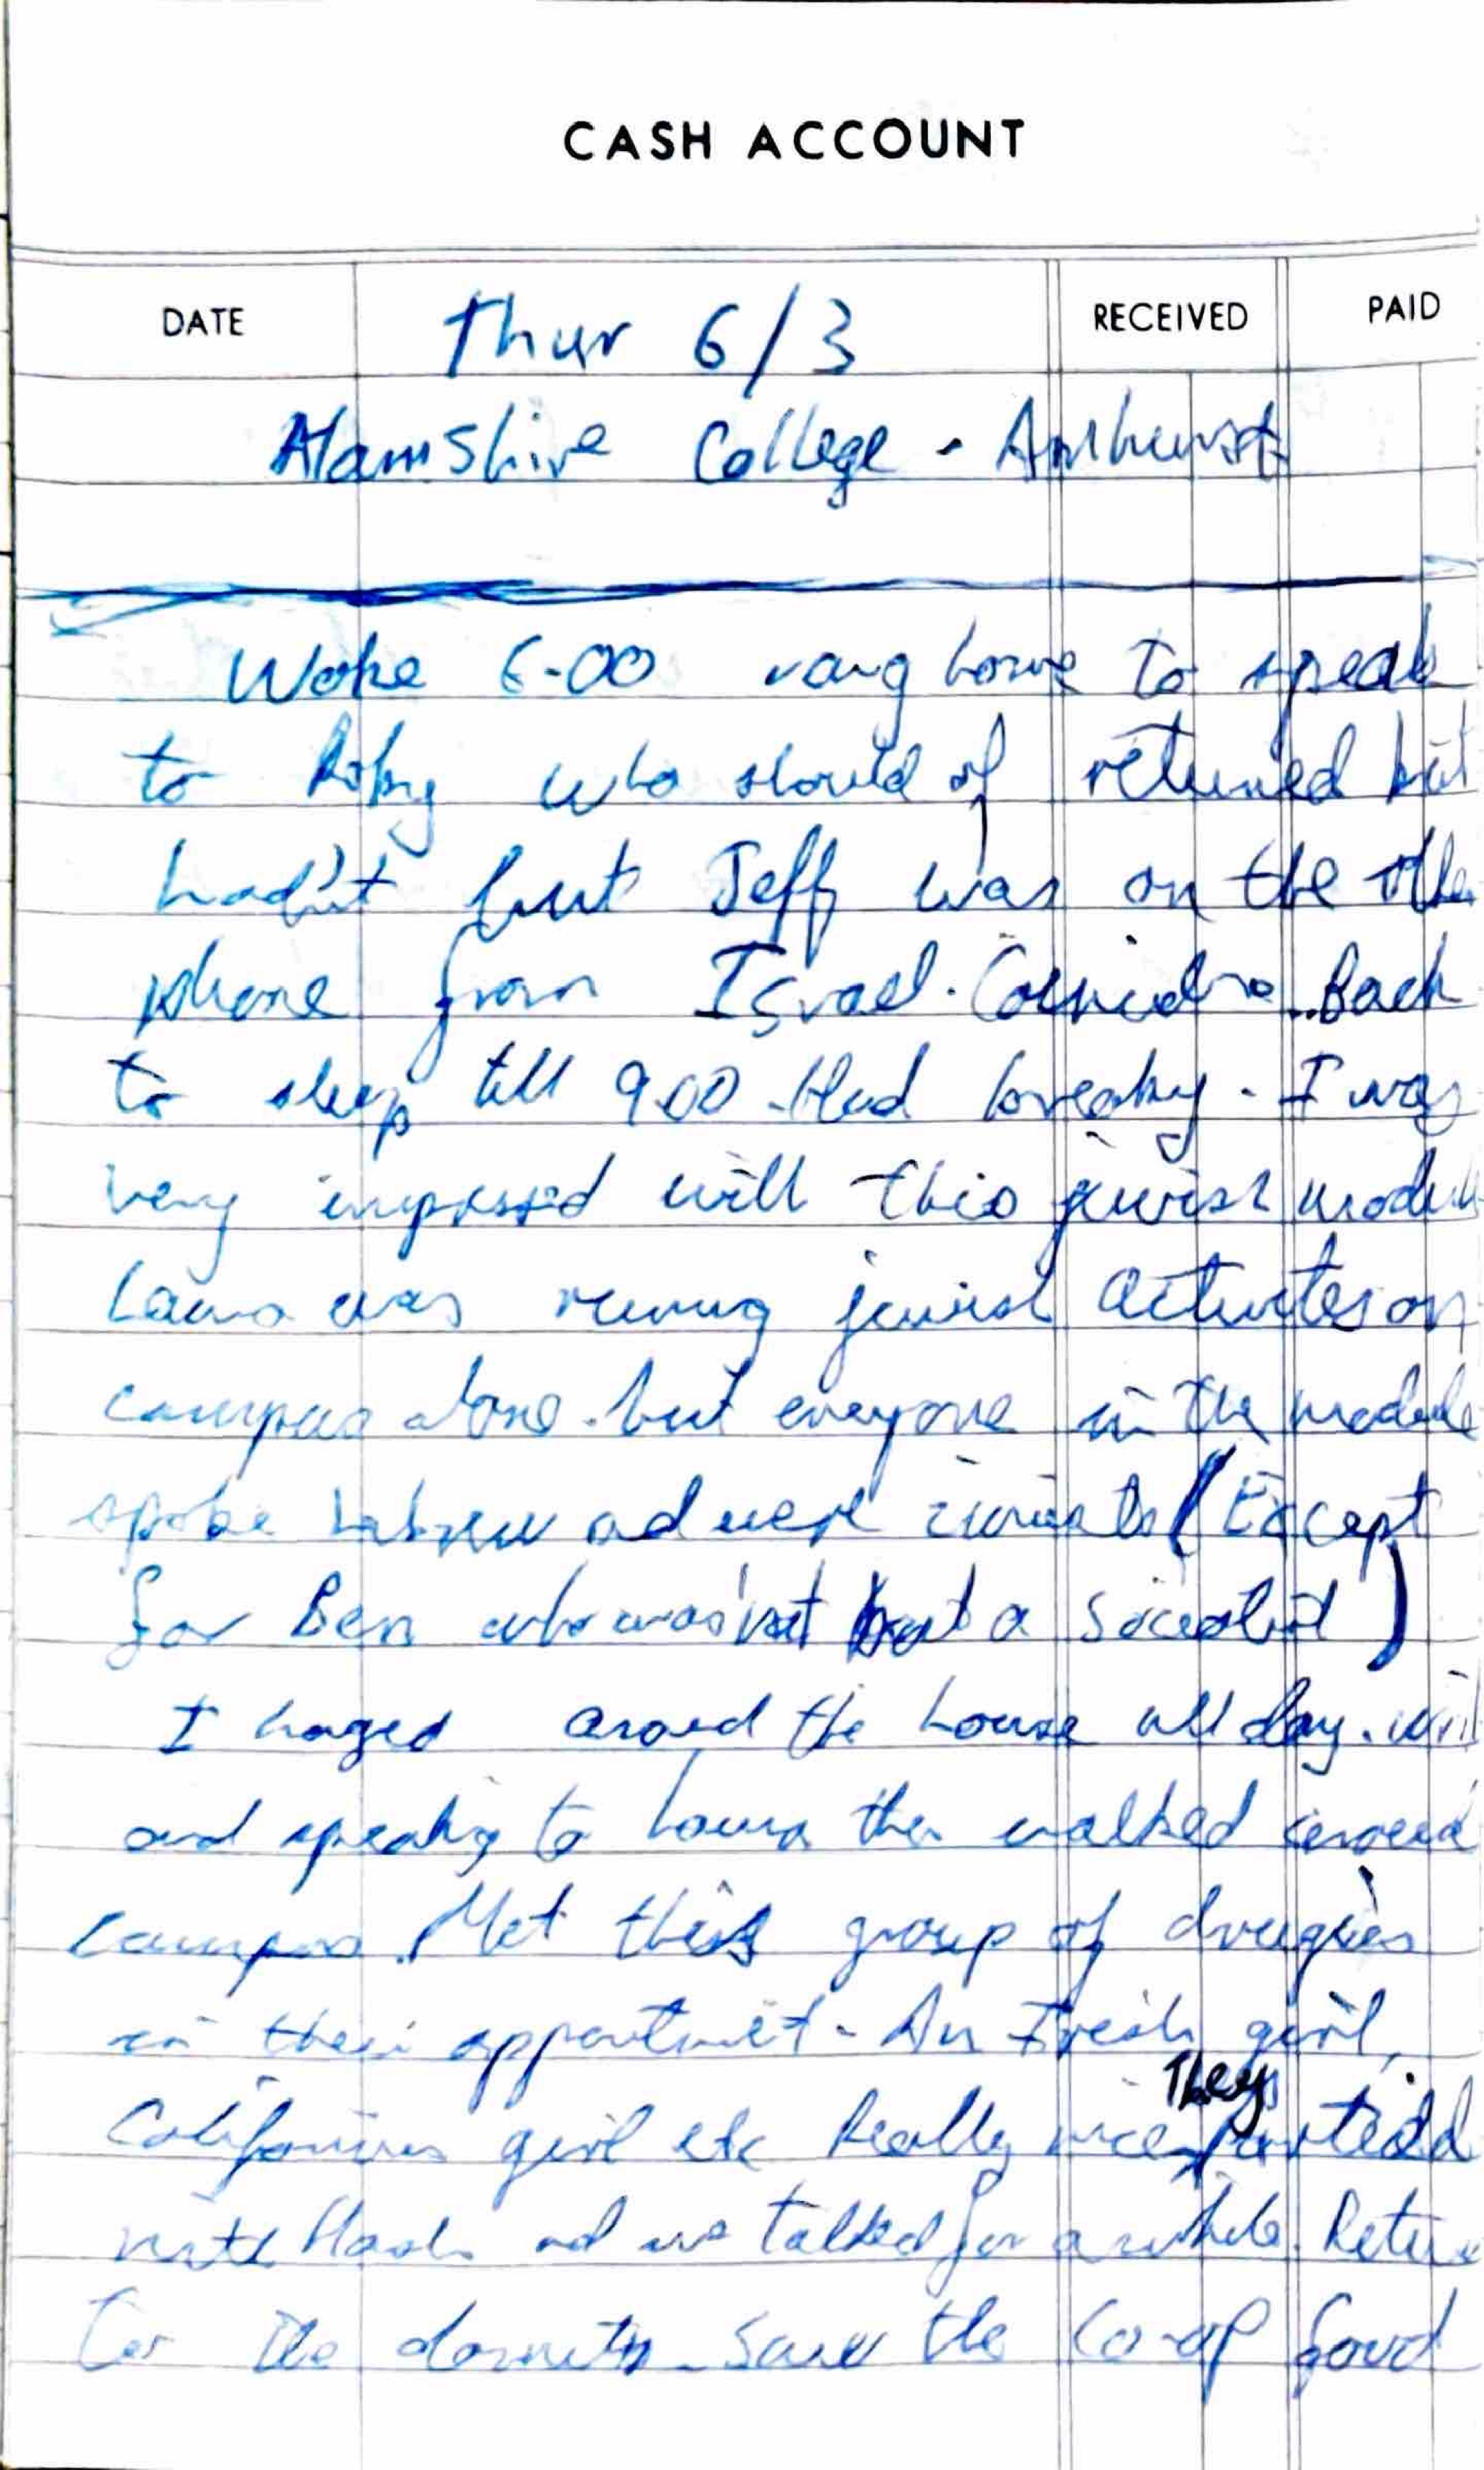 CASH ACCOUNT
DATE Thur 6/3 RECEIVED PAID
Hamshire College - Amhurst
Woke 6-00 rang home to speak
to who should of returned but
hadn't but Jeff was on the other
phone from Israel. Back
to sleep till 9.00 - Had breaky - I was
very impressed with this jewish module
Laura was runing jewish activites on
campus alone - but everyone in the module
spoke hebrew ad were zionists (Except
for Ben who was'nt but a Socialist)
I haged aroud the house all day.
and speakig to Laura then walked aroud
campus. Met this group of druggies
in their appartmet - An Irish girl,
Californian girl etc Really nice They
parteidd
with Hash ad we talked for a while.
to the dorm saw the Co-op food